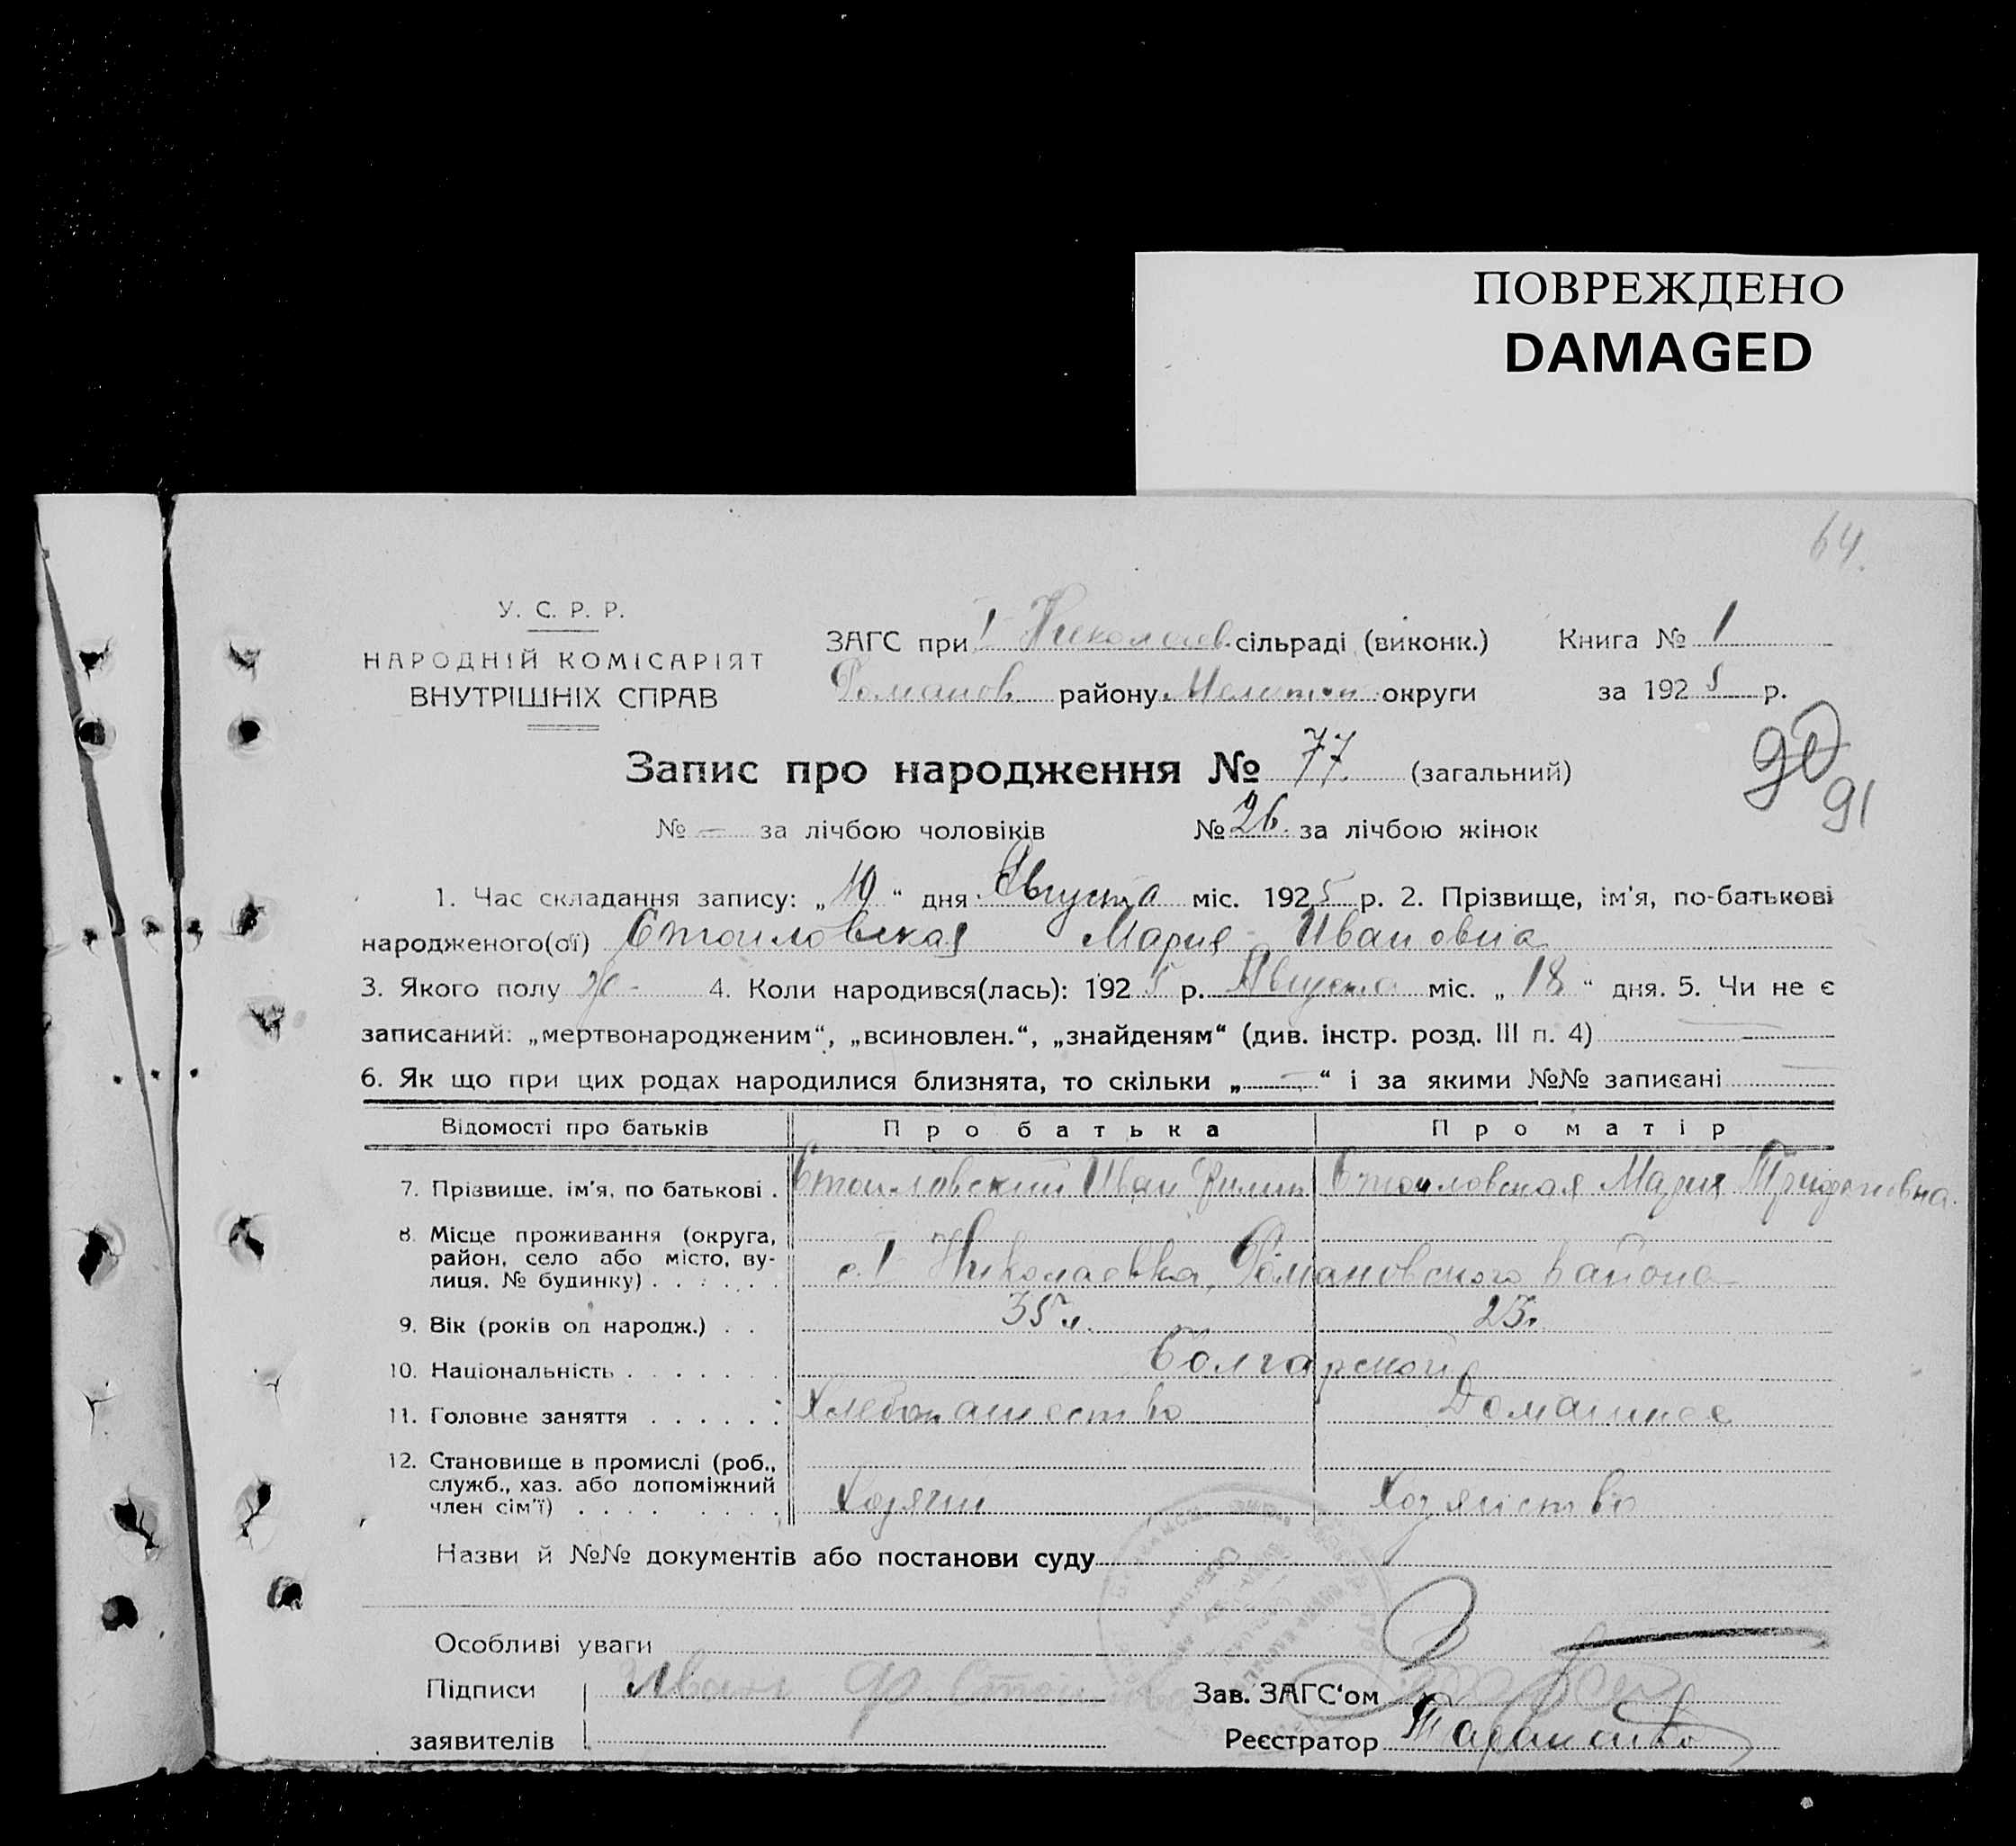 ПОВРЕЖДЕНО
DAMAGED
64.
У. С. Р. Р.
НАРОДНІЙ КОМІСАРІЯТ
ВНУТРІШНІХ СПРАВ
ЗАГС при I Николаев. сільраді (виконк.) Книга № 1
Романов району Мелитоп. округи за 1925 р.
Запис про народження № 77. (загальний)
90
91
№ — за лічбою чоловіків № 26. за лічбою жінок
1. Час складання запису: „19“ дня Августа міс. 1925 р. 2. Прізвище, ім'я, по-батькові
народженого(ої) Стоиловская Мария Ивановна
3. Якого полу ж- 4. Коли народився(лась): 1925 р. Августа міс. „18“ дня. 5. Чи не є
записаний: „мертвонародженим“, „всиновлен.“, „знайденям“ (див. інстр. розд. III п. 4) —
6. Як що при цих родах народилися близнята, то скільки „—“ і за якими №№ записані —
Відомості про батьків Про батька Про матір
7. Прізвище, ім'я, по батькові . Стоиловский Иван Филип. Стоиловская Мария
8. Місце проживання (округа, район, село або місто, ву-
лиця, № будинку) . . . . . . с. I Николаевка, Романовского района
9. Вік (років од народж.) . . 35 л. 23.
10. Національність . . . . . . . Болгарской
11. Головне заняття . . . . . . Хлебопашество Домашнее
12. Становище в промислі (роб.,
служб., хаз. або допоміжний
член сім'ї) . . . . . . . . Хозяин Хозяйство
Назви й №№ документів або постанови суду
Особливі уваги
Підписи Иван Ф. Стоил Зав. ЗАГС'ом
заявителів Реєстратор